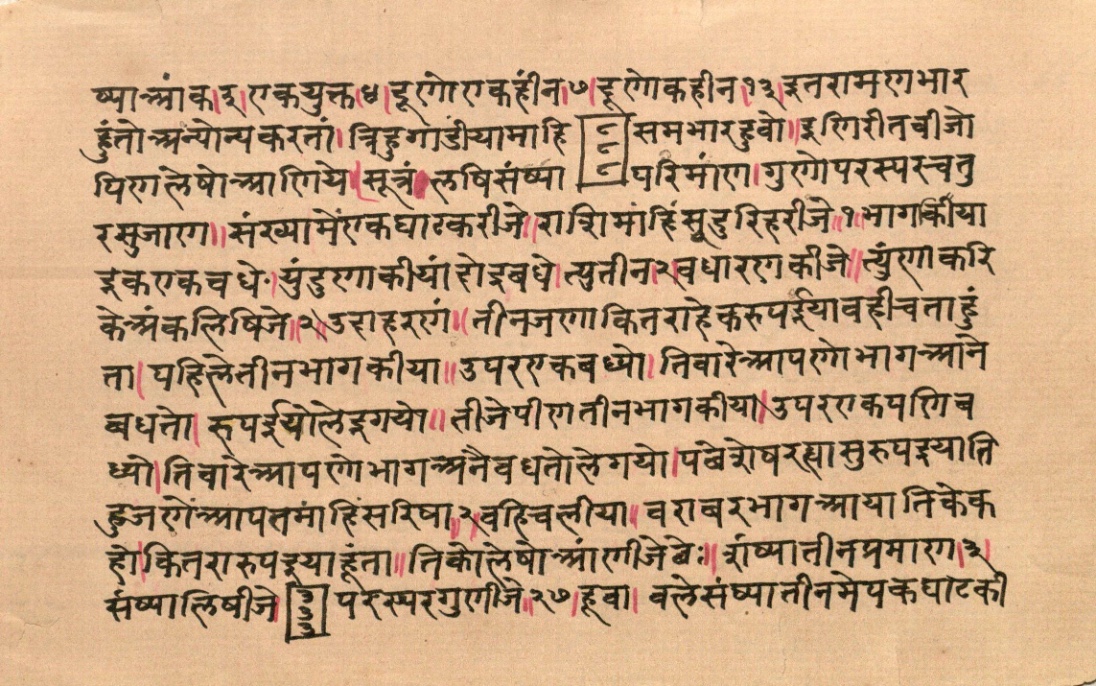 ष्याआंक।३।एकयुक्त।४।दूणोएकहीन।७।दूणोकहीन।१३।इतरामणभार
हुंतोअन्योन्यकरतां।त्रिहुगांडीयामाहि समभारहुवो॥इणिरीतबीजो
पिणलेषोआणिये।सूत्रं।लषिसंष्या परिमांण।गुणोपरस्परचतु
रसुजाण॥संख्यामेंएकघाटकरीजे॥राशिमांहिंसूदुरिहरीजे॥१॥भागकीया
इकएकवधे।युंदुणाकीयांहोइबधे।त्युतीन२।वधारणकीजे॥त्युंणाकरि
केअंकलिषिजे॥२॥उदाहरणं॥तीनजणाकितराहेकरुपईयावहीचताहुं
ता।पहिलेतीनभागकीया॥उपरएकबध्यो।तिवारेआपणोभागअाने
बधतो।रुपईयोलेइगयो॥तीजेपीणतीनभागकीया।उपरएकपणिब
ध्यो।तिवारेआपणोभागअनैवधतोलेगयो।पंबेशेषरह्यासुरुपइयाति
हुजणेंआपतमांहिंसरिषा॥२वहिचलीया॥बराबरभागआयातिकेक
हो।कितरारुपइयाहूंता॥तिकोलेषोआंणीजेबेः॥रांष्यातीनप्रमाण।३।
संष्यालिषीजे। ३३३ परस्परगुणीजे॥२७।हूवा।वलेसंष्यातीनमेपकघाटकी